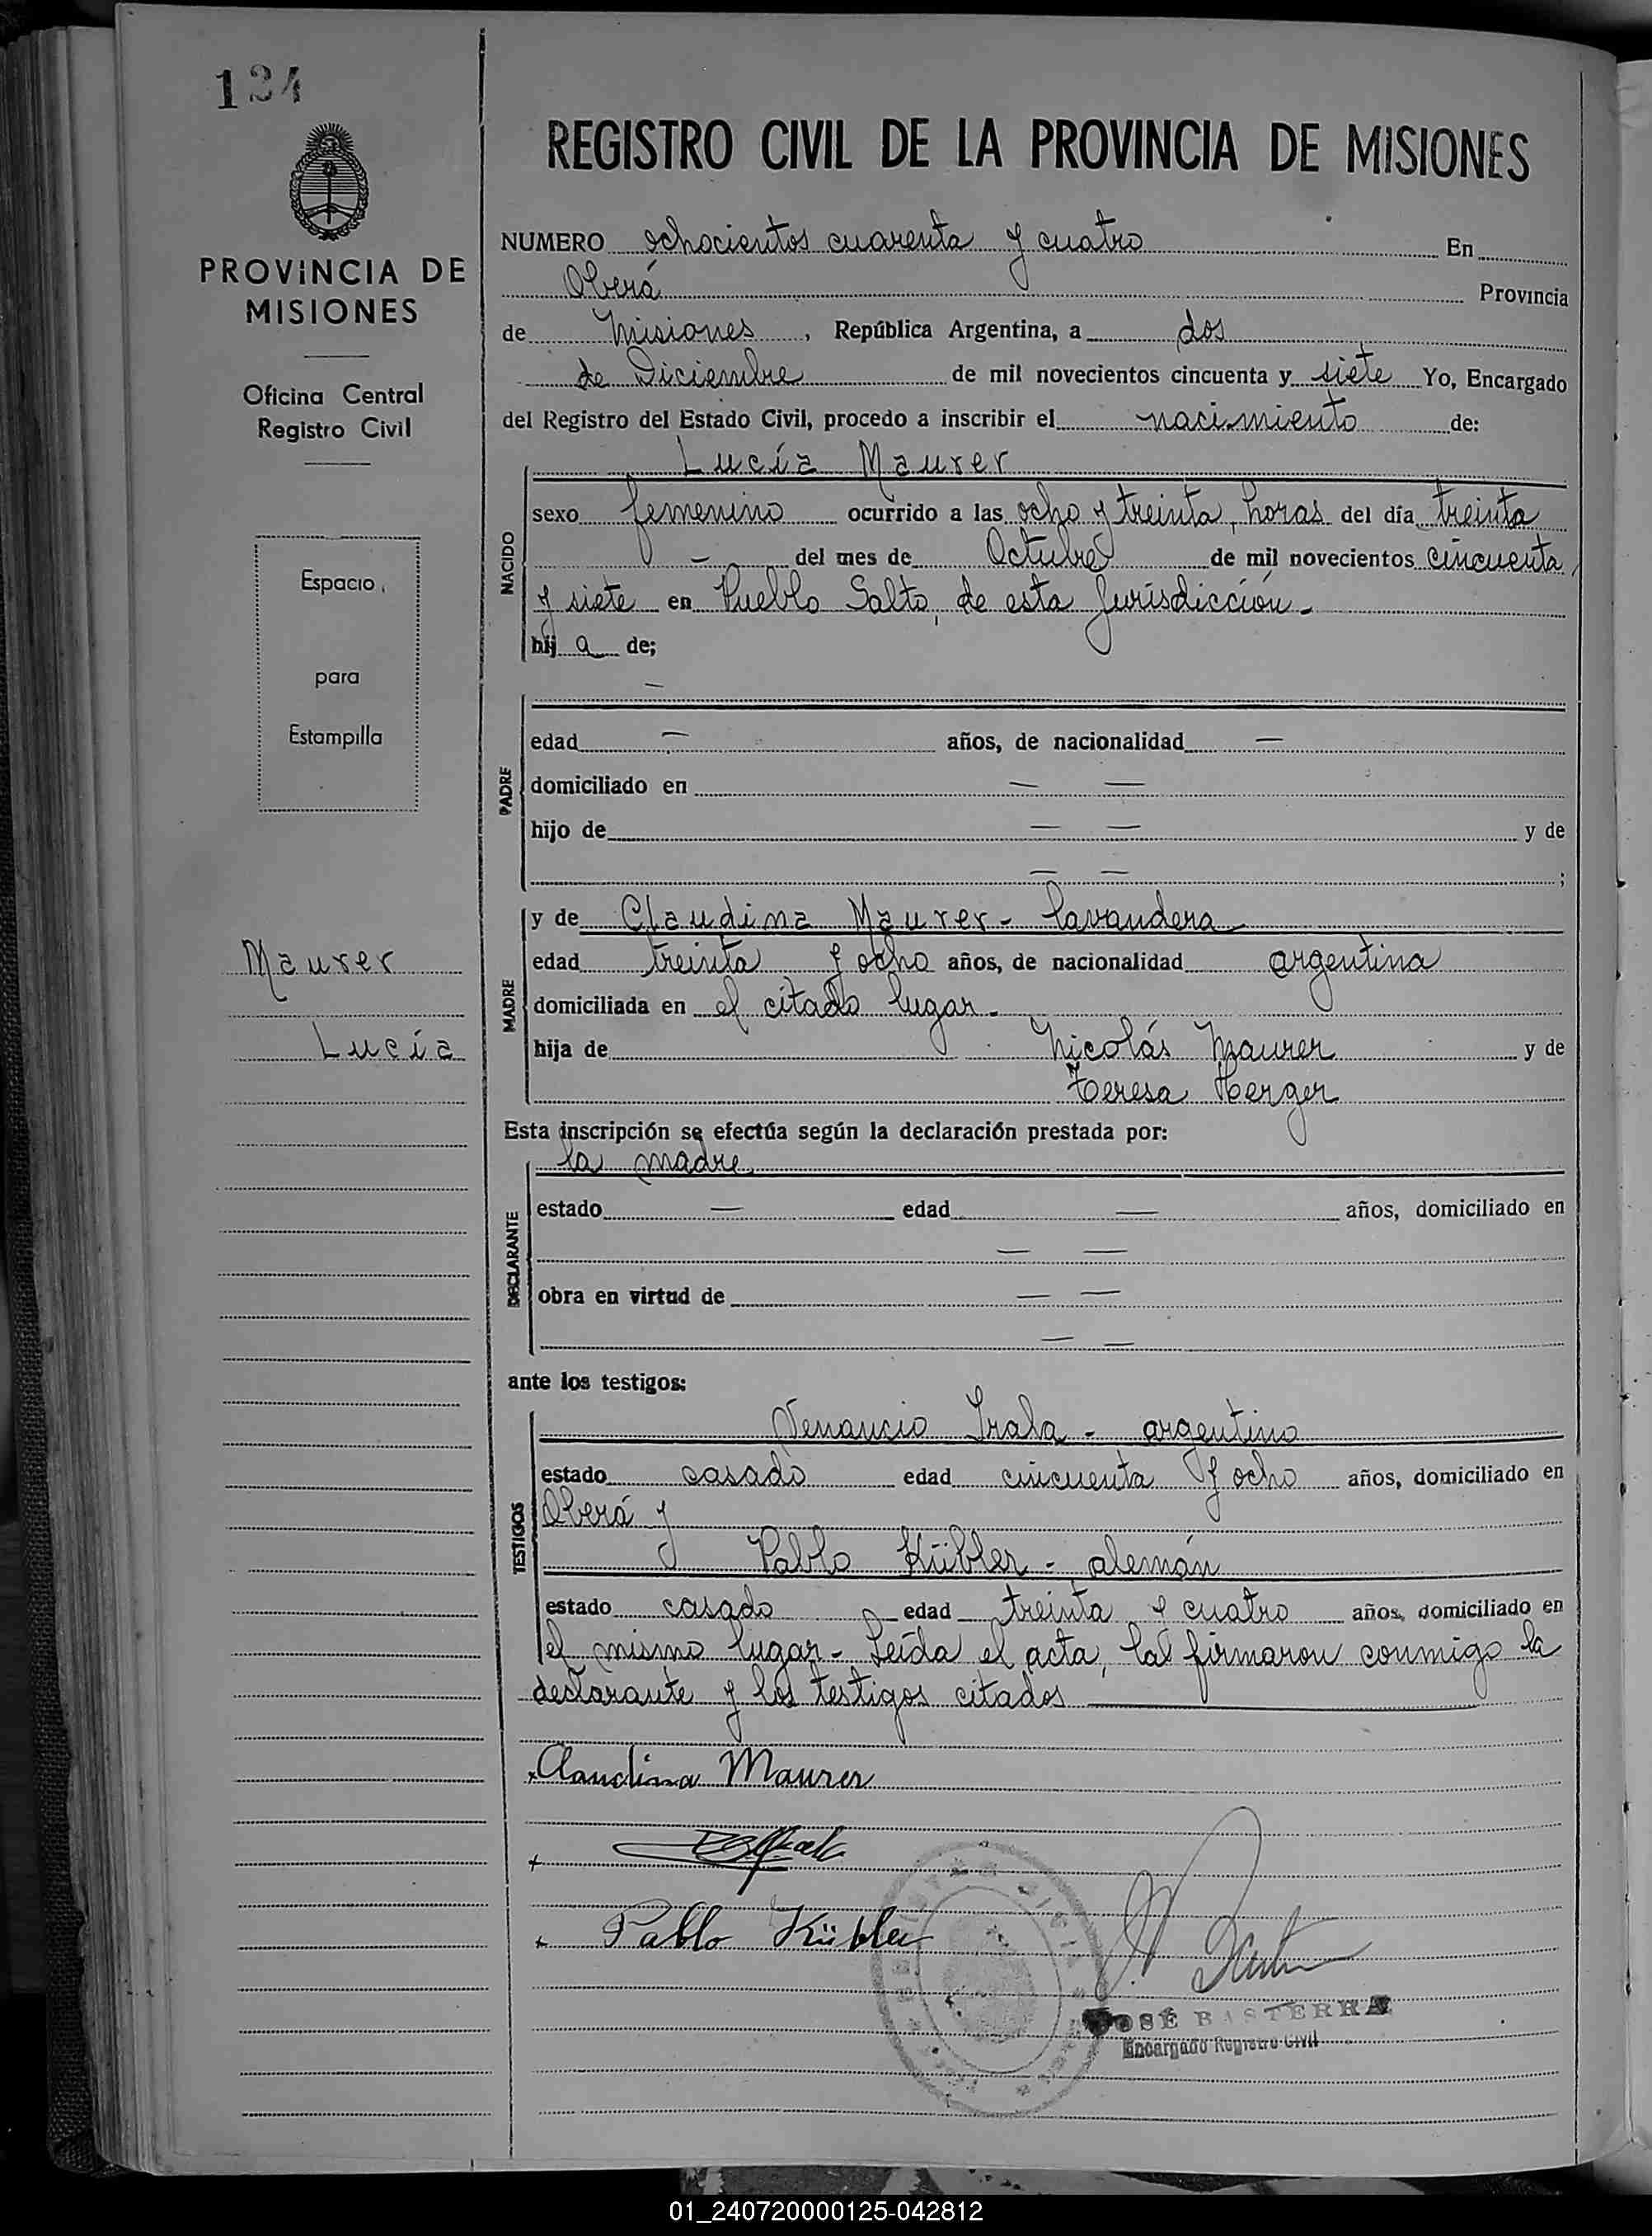 134
PROVINCIA DE
MISIONES
Oficina Central
Registro Civil
Espacio
para
Estampilla
Maurer
Lucía
REGISTRO CIVIL DE LA PROVINCIA DE MISIONES
NUMERO ochocientos cuarenta y cuatro En
Oberá Provincia
de Misiones, República Argentina, a dos
de Diciembre de mil novecientos cincuenta y siete Yo, Encargado
del Registro del Estado Civil, procedo a inscribir el nacimiento de:
Lucía Maurer
NACIDO
sexo femenino ocurrido a las ocho y treinta, horas del día treinta
— del mes de Octubre de mil novecientos cincuenta
y siete en Pueblo Salto, de esta Jurisdicción.-
hij a de;
—
PADRE
edad — años, de nacionalidad —
domiciliado en — —
hijo de — — y de
— — ;
MADRE
y de Claudina Maurer - lavandera
edad treinta y ocho años, de nacionalidad argentina
domiciliada en el citado lugar.-
hija de Nicolás Maurer y de
Teresa Herger
Esta inscripción se efectúa según la declaración prestada por:
la madre
DECLARANTE
estado — edad — años, domiciliado en
— —
obra en virtud de — —
— —
ante los testigos:
TESTIGOS
Venancio Irala - argentino
estado casado edad cincuenta y ocho años, domiciliado en
Oberá y
Pablo Kübler - alemán
estado casado edad treinta y cuatro años, domiciliado en
el mismo lugar - Leída el acta, la firmaron conmigo la
declarante y los testigos citados
Claudina Maurer
Pablo Kübler
JOSÉ BASTERRA
Encargado Registro Civil
01_240720000125-042812